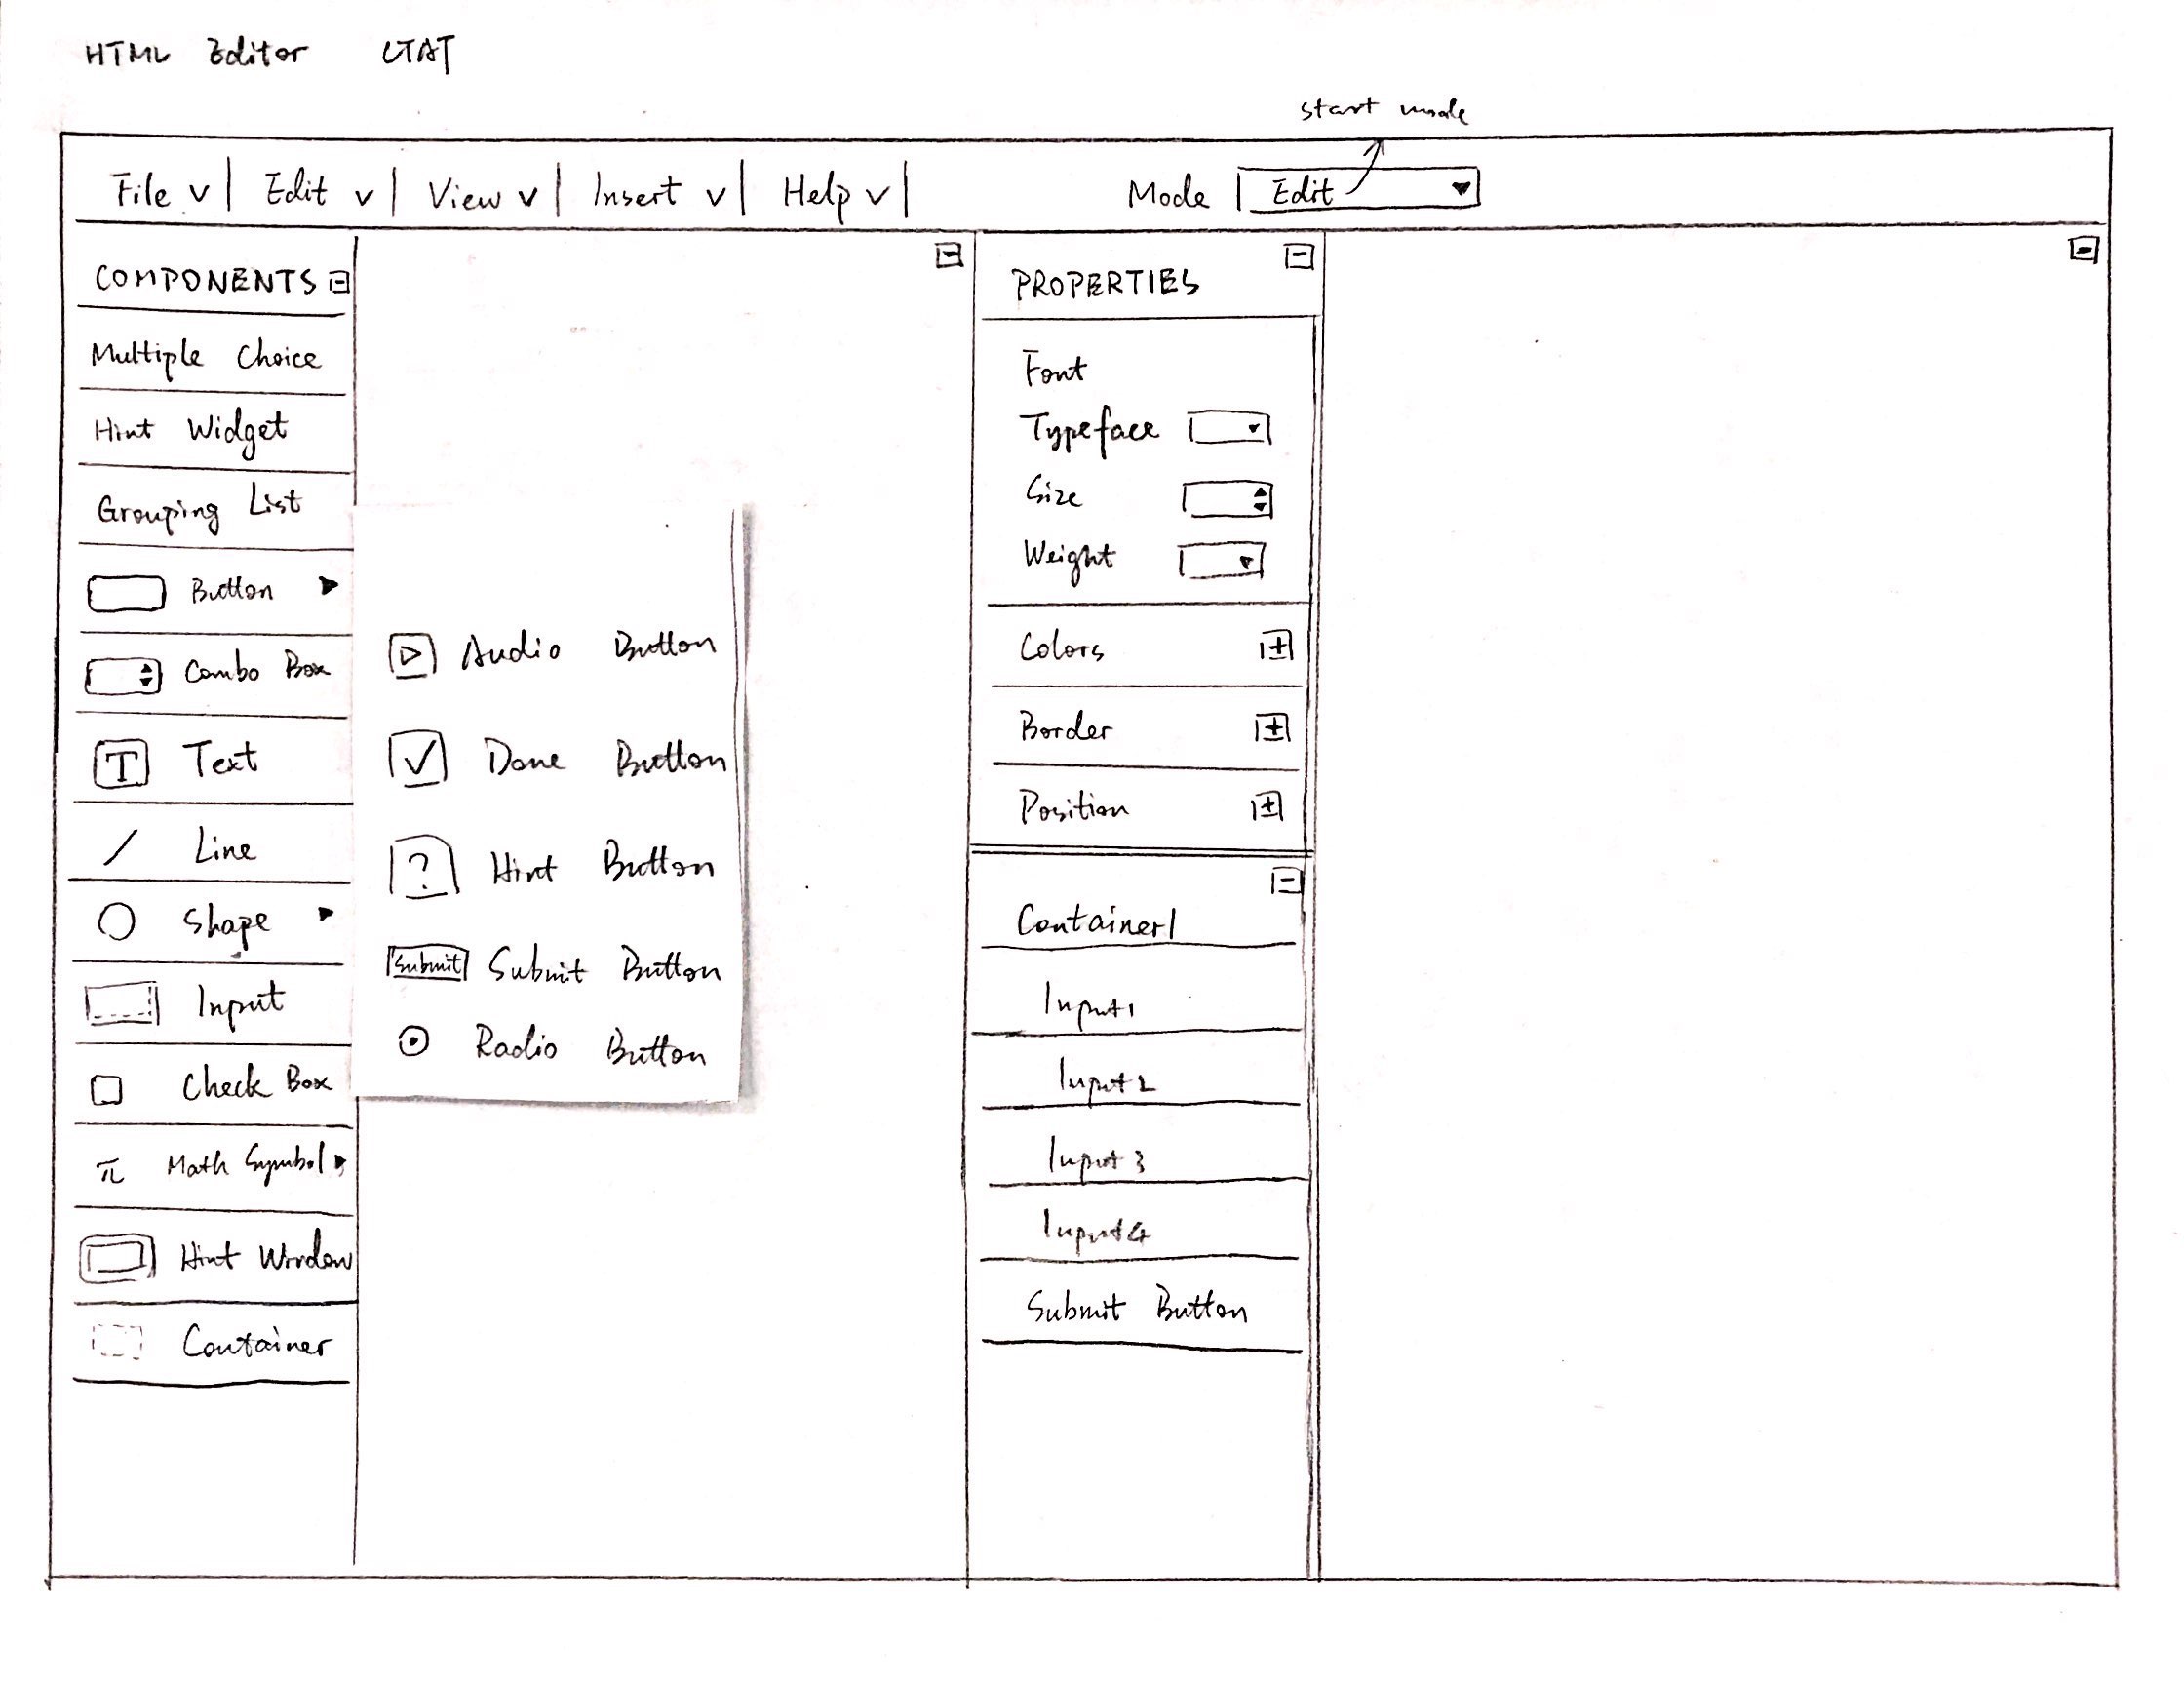 HTML Editor CTAT
start mode
File v | Edit v | View v | Insert v | Help v | Mode Edit
COMPONENTS
Multiple Choice
Hint Widget
Grouping List
Button
Combo Box
T Text
Line
Shape
Input
Check Box
π Math Symbol
Hint Window
Container
Audio Button
Done Button
? Hint Button
Submit Submit Button
Radio Button
PROPERTIES
Font
Typeface
Size
Weight
Colors
Border
Position
Container1
Input1
Input2
Input3
Input4
Submit Button